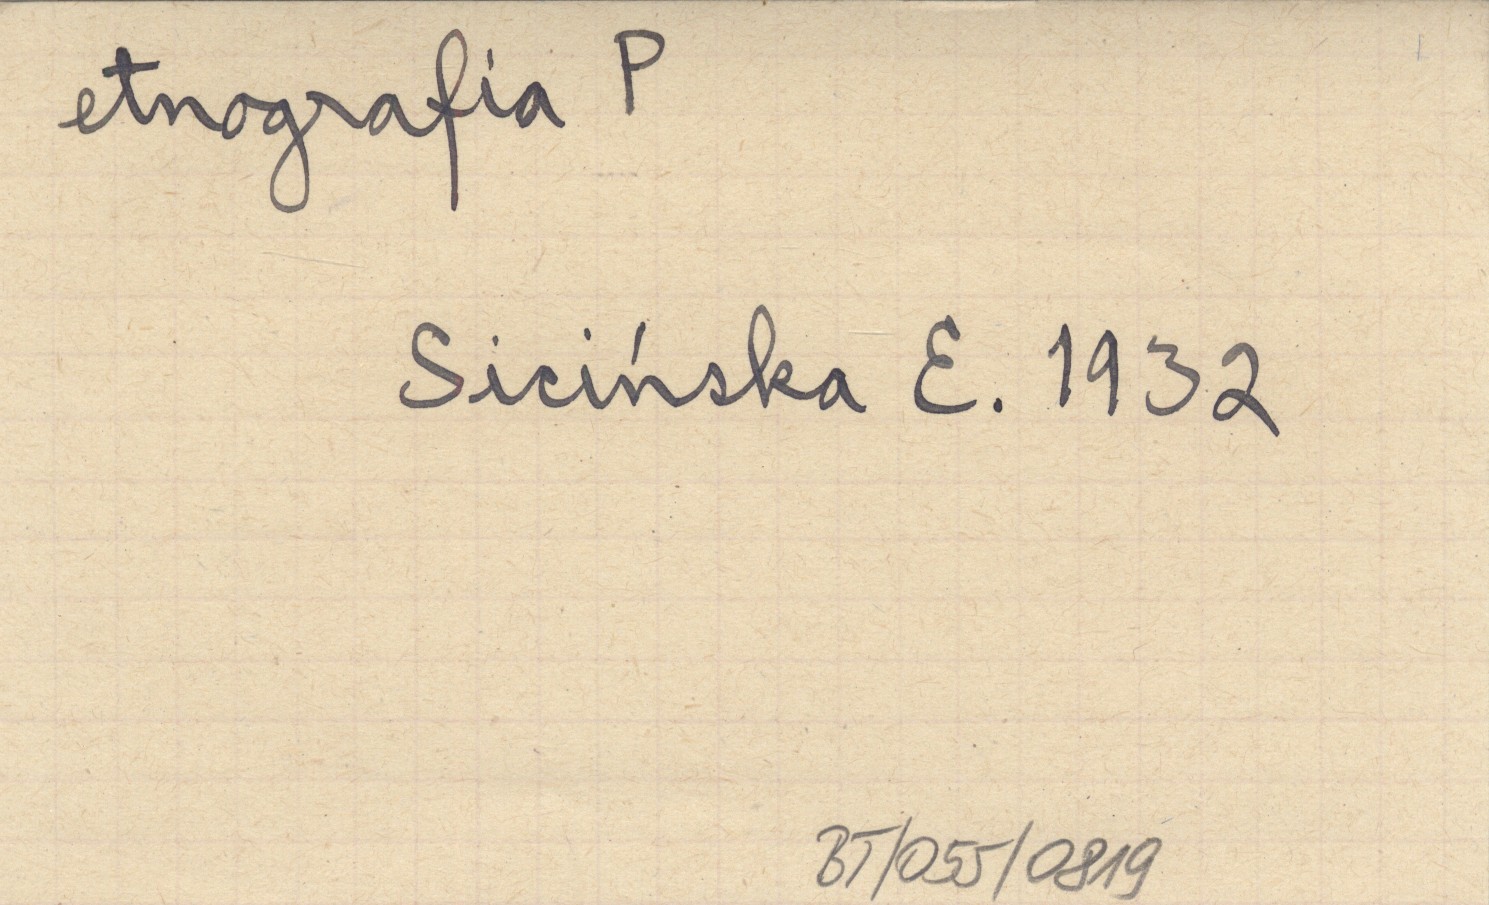 etnografia P
Sicińska E. 1932
BT/055/0819